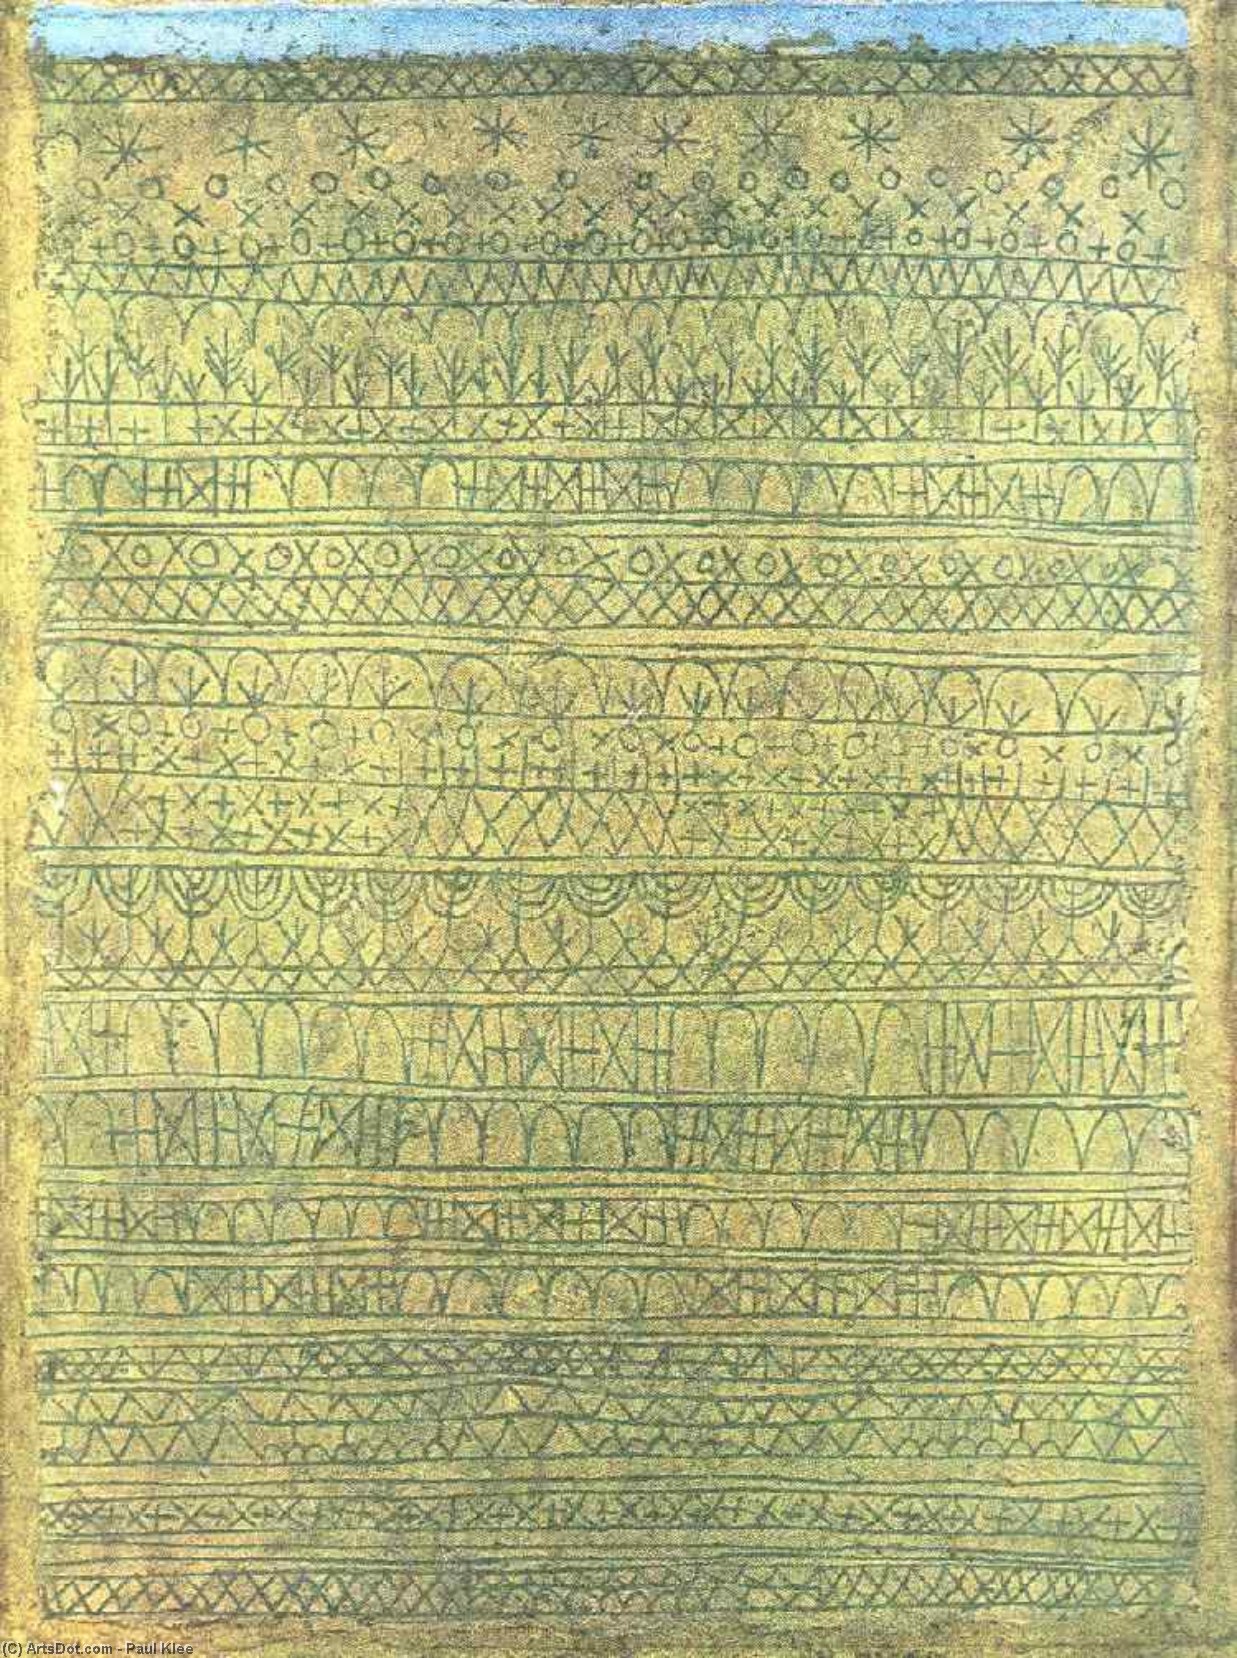 (C) ArtsDot.com - Paul Klee